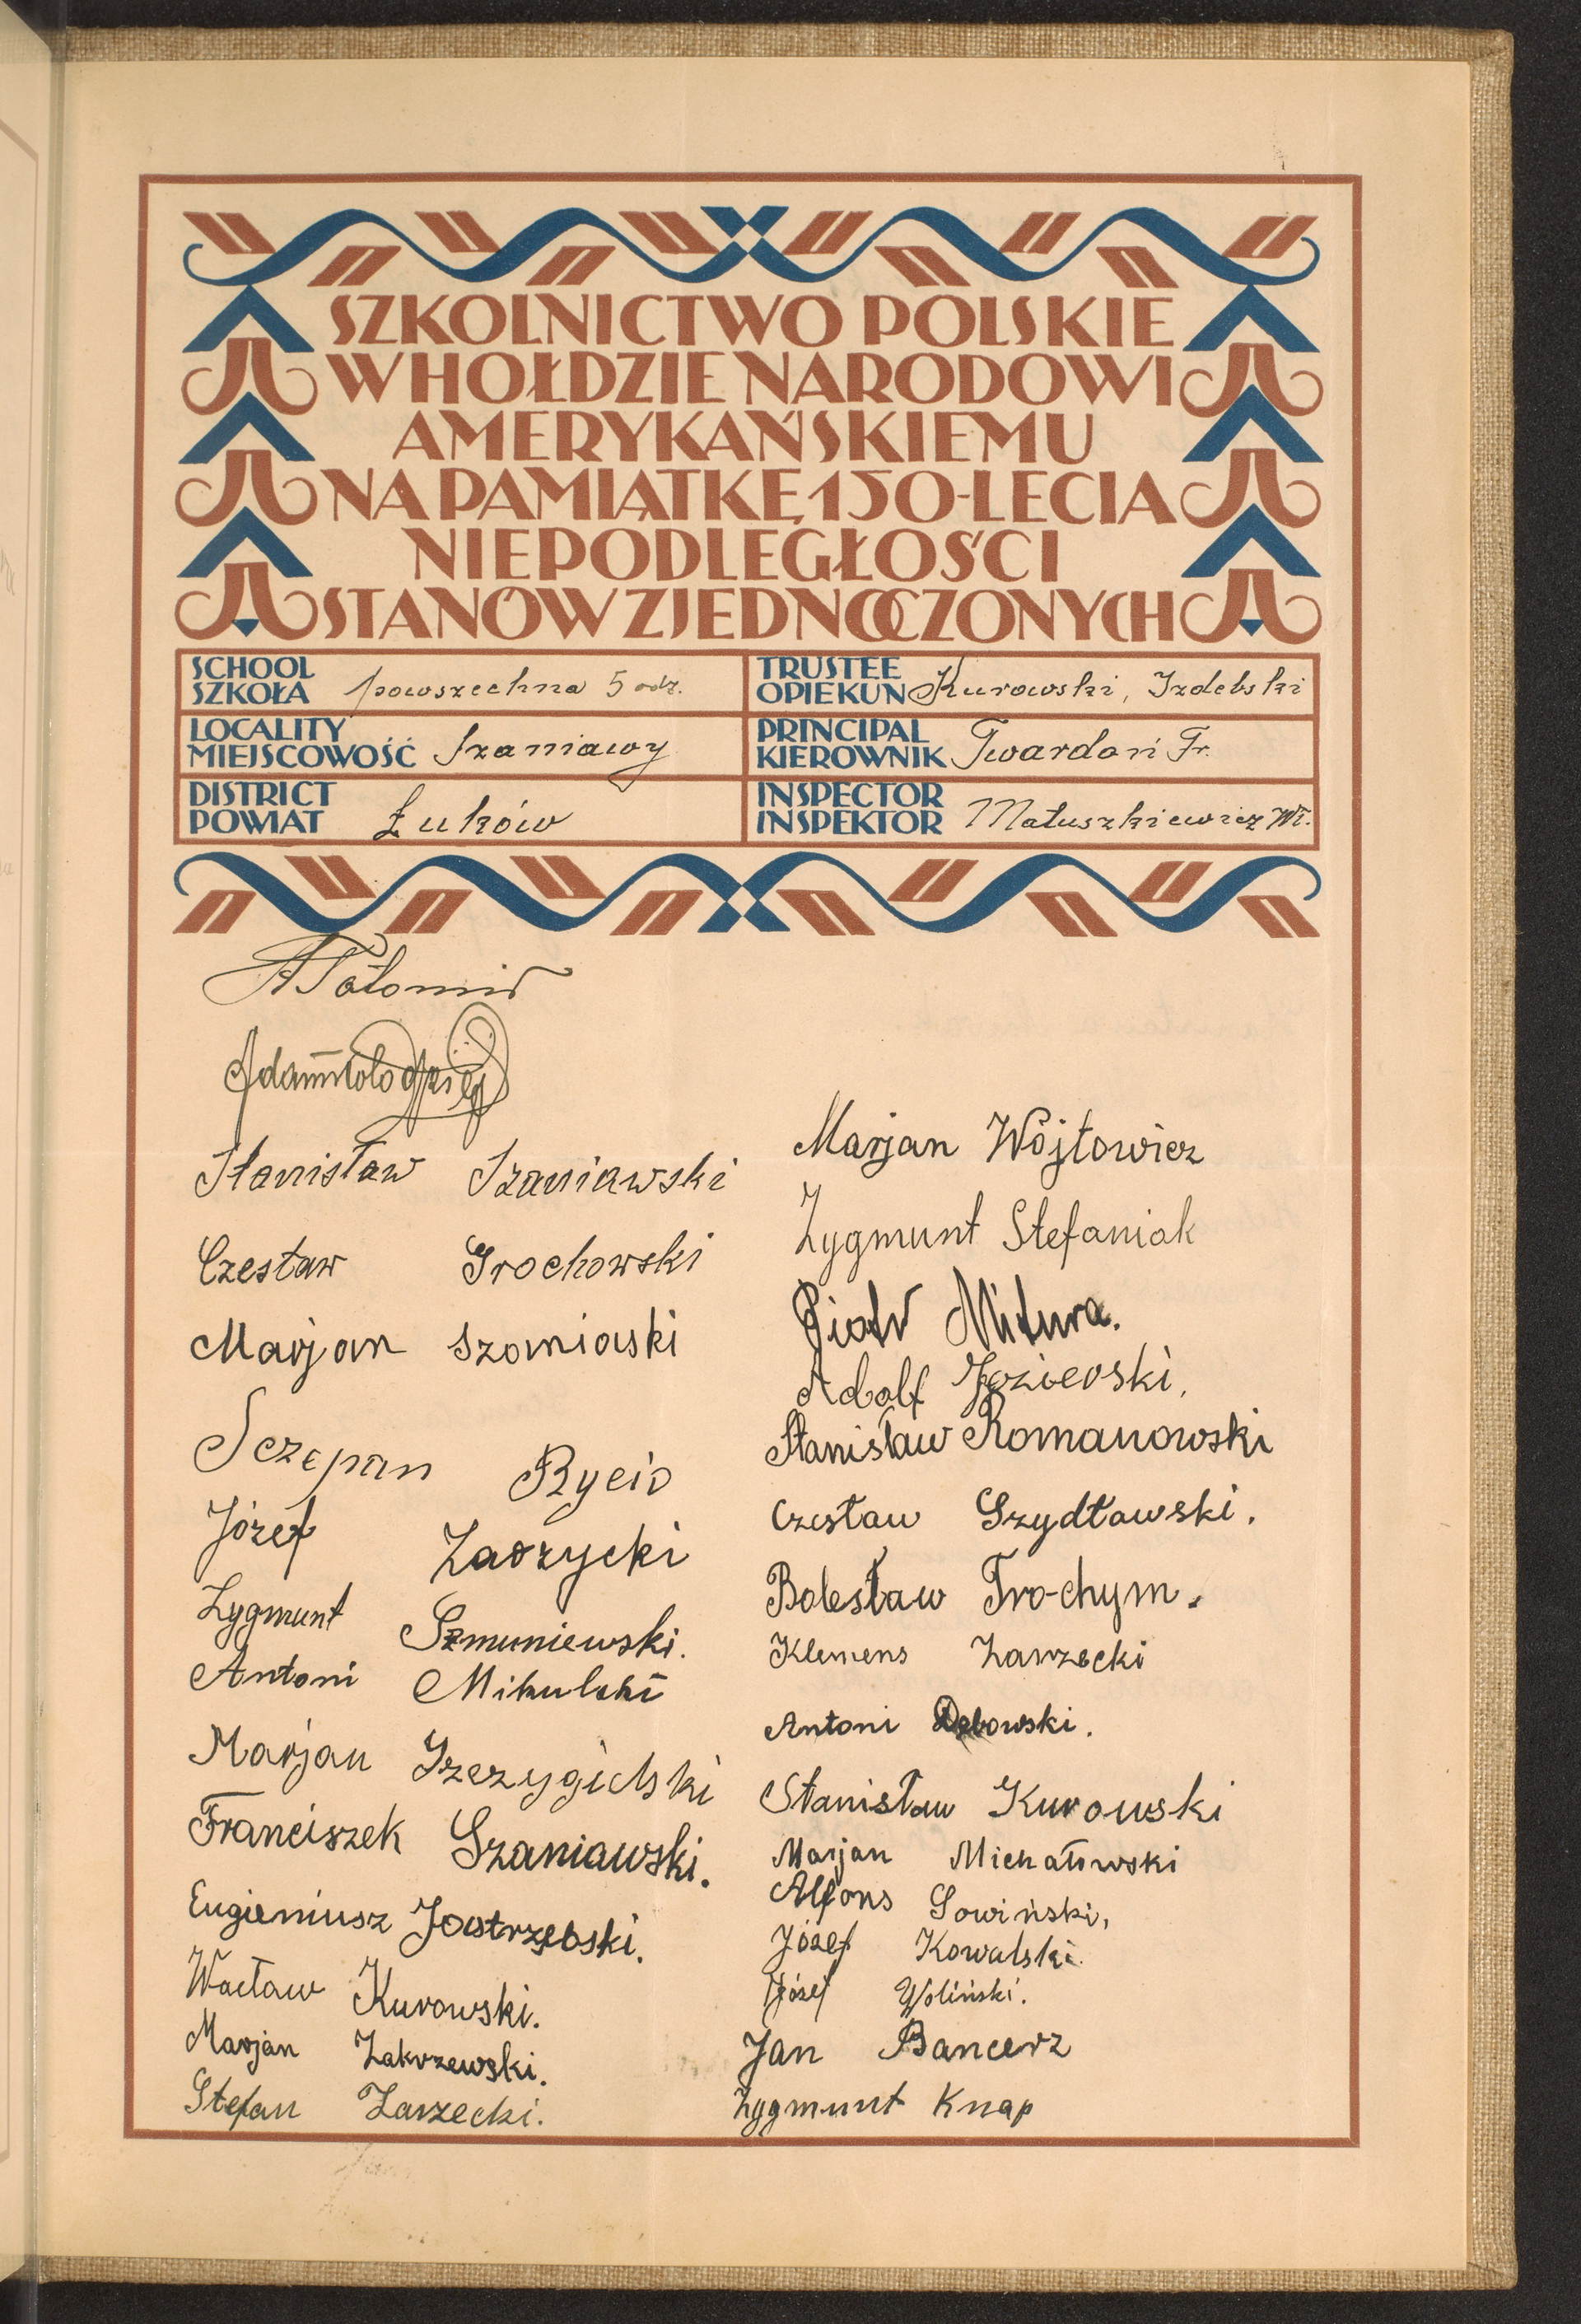 SZKOLNICTWO POLSKIE
W HOŁDZIE NARODOWI
AMERYKAŃSKIEMU
NA PAMIĄTKĘ 150-LECIA
NIEPODLEGŁOŚCI
STANÓW ZJEDNOCZONYCH
SCHOOL
SZKOŁA powszechna 5 odz.
TRUSTEE
OPIEKUN Kurowski, Izdebski
LOCALITY
MIEJSCOWOŚĆ Szaniawy
PRINCIPAL
KIEROWNIK Twardoń Fr.
DISTRICT
POWIAT Łuków
INSPECTOR
INSPEKTOR Matuszkiewicz Wł.
Stanisław Szaniawski
Czesław Grochowski
Marjan Szoniaski
Sczepan Rycio
Józef Zaorzycki
Zygmunt Szmuniewski.
Antoni Mikulski
Marjan Szczygielski
Franciszek Szaniawski.
Eugieniusz Jastrzębski.
Wacław Kurowski.
Marjan Zakrzewski.
Stefan Zarzecki.
Marjan Wójtowicz
Zygmunt Stefaniak
Piotr Mitura.
Adolf
Stanisław Romanowski
Czesław Szydławski.
Bolesław Tro-chym.
Klemens Zarzecki
Antoni Dębowski.
Stanisław Kurowski
Marjan Michałowski
Alfons Sowiński,
Józef Kowalski.
Józef Woliński.
Jan Bancerz
Zygmunt Knap